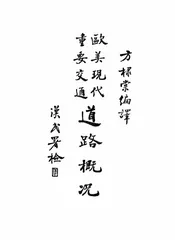 方棣棠編譯
歐美現代
重要交通
道路概况
漢民署檢